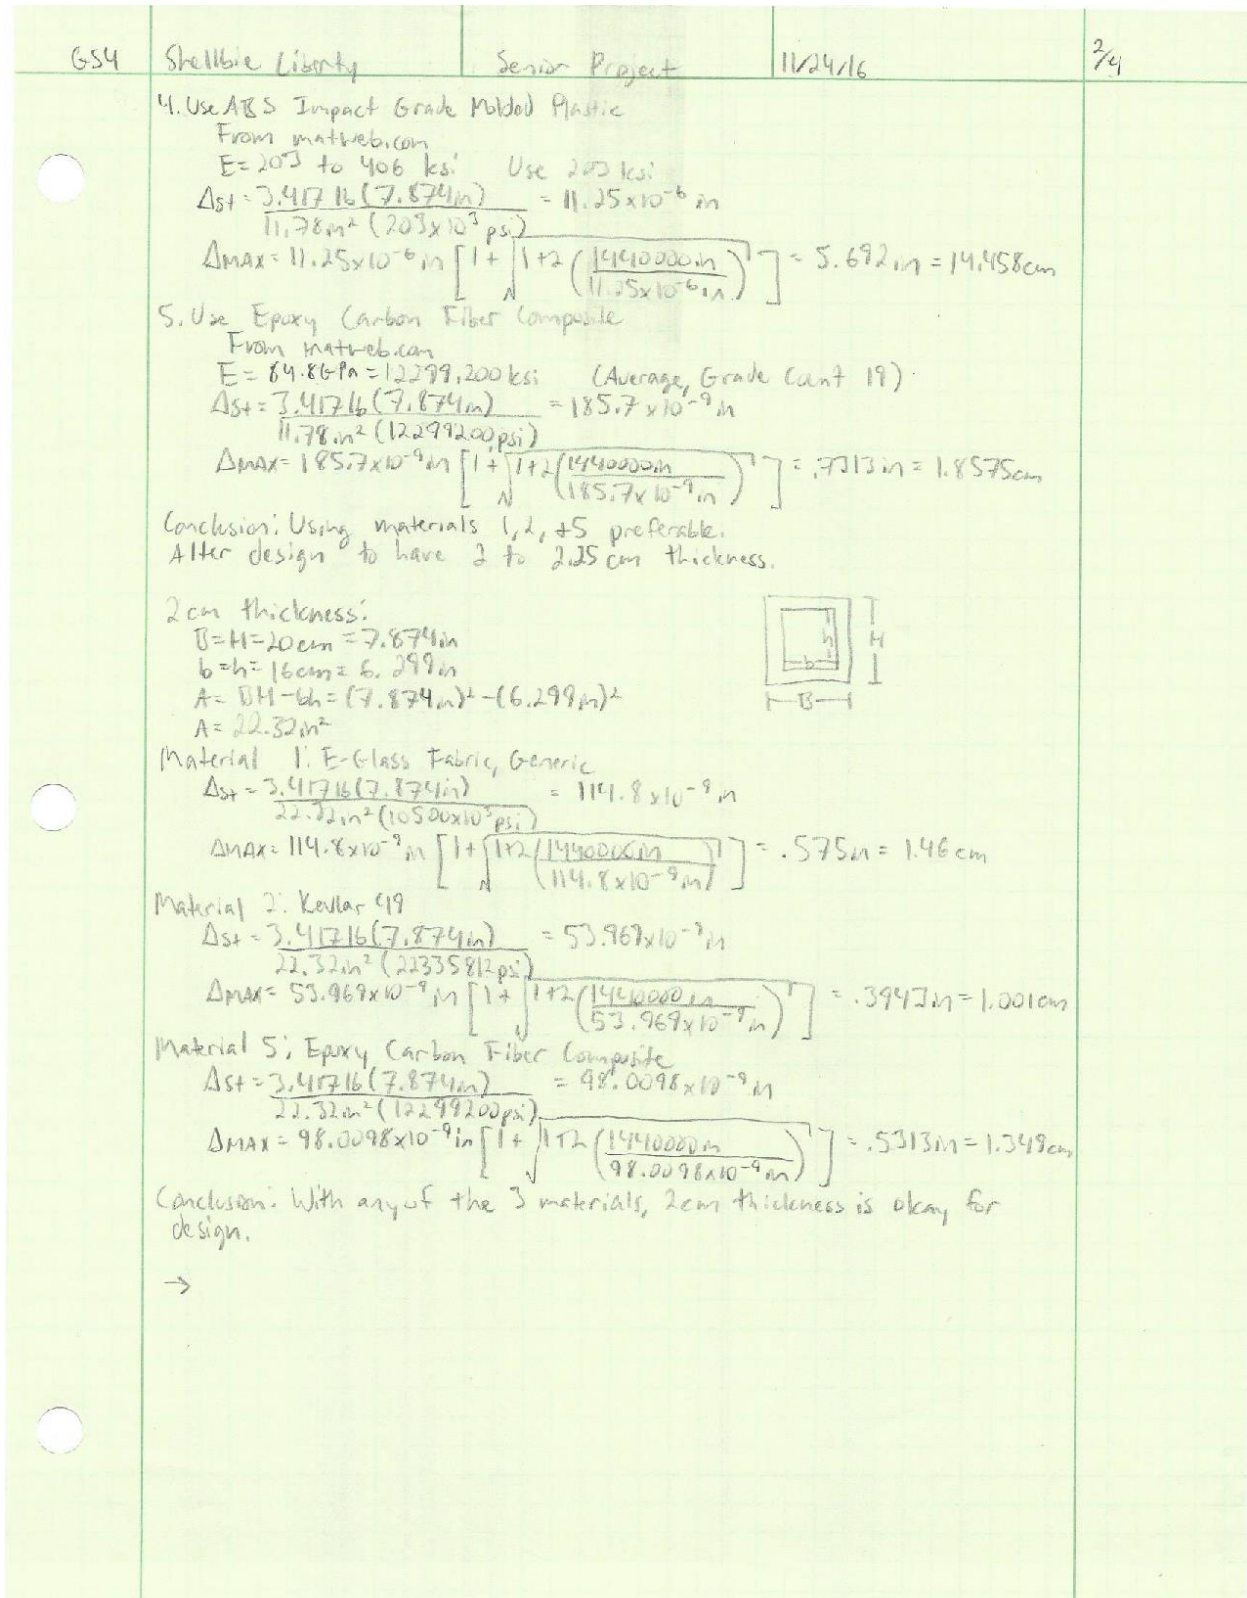 GS4 Shellbie Liberty Senior Project 11/24/16 2/4
4. Use ABS Impact Grade Molded Plastic
From matweb.com
E = 203 to 406 ksi Use 203 ksi
Δst = 3.417 lb (7.874in) / 11.78in² (203x10³ psi) = 11.25x10⁻⁶ in
ΔMAX = 11.25x10⁻⁶ in [1 + √(1+2(1440000in / 11.25x10⁻⁶ in))] = 5.692 in = 14.458cm
5. Use Epoxy Carbon Fiber Composite
From matweb.com
E = 84.8GPa = 12299.200 ksi (Average, Grade Count 19)
Δst = 3.417 lb (7.874in) / 11.78in² (12299200psi) = 185.7x10⁻⁹ in
ΔMAX = 185.7x10⁻⁹ in [1 + √(1+2(1440000in / 185.7x10⁻⁹ in))] = .7313in = 1.8575cm
Conclusion: Using materials 1, 2, +5 preferable.
Alter design to have 2 to 2.25 cm thickness.
2cm thickness:
B=H=20cm=7.874in
b=h=16cm=6.299in
A= BH-bh=(7.874in)²-(6.299in)²
A= 22.32in²
b h H
B
Material 1: E-Glass Fabric, Generic
Δst = 3.417 lb (7.874in) / 22.32in² (10500x10³ psi) = 114.8x10⁻⁹ in
ΔMAX = 114.8x10⁻⁹ in [1 + √(1+2(1440000in / 114.8x10⁻⁹ in))] = .575in = 1.46cm
Material 2: Kevlar 49
Δst = 3.417 lb (7.874in) / 22.32in² (22335812psi) = 53.969x10⁻⁹ in
ΔMAX = 53.969x10⁻⁹ in [1 + √(1+2(1440000in / 53.969x10⁻⁹ in))] = .3943in = 1.001cm
Material 5: Epoxy Carbon Fiber Composite
Δst = 3.417 lb (7.874in) / 22.32in² (12299200psi) = 98.0098x10⁻⁹ in
ΔMAX = 98.0098x10⁻⁹ in [1 + √(1+2(1440000in / 98.0098x10⁻⁹ in))] = .5313in = 1.349cm
Conclusion: With any of the 3 materials, 2cm thickness is okay for
design.
→